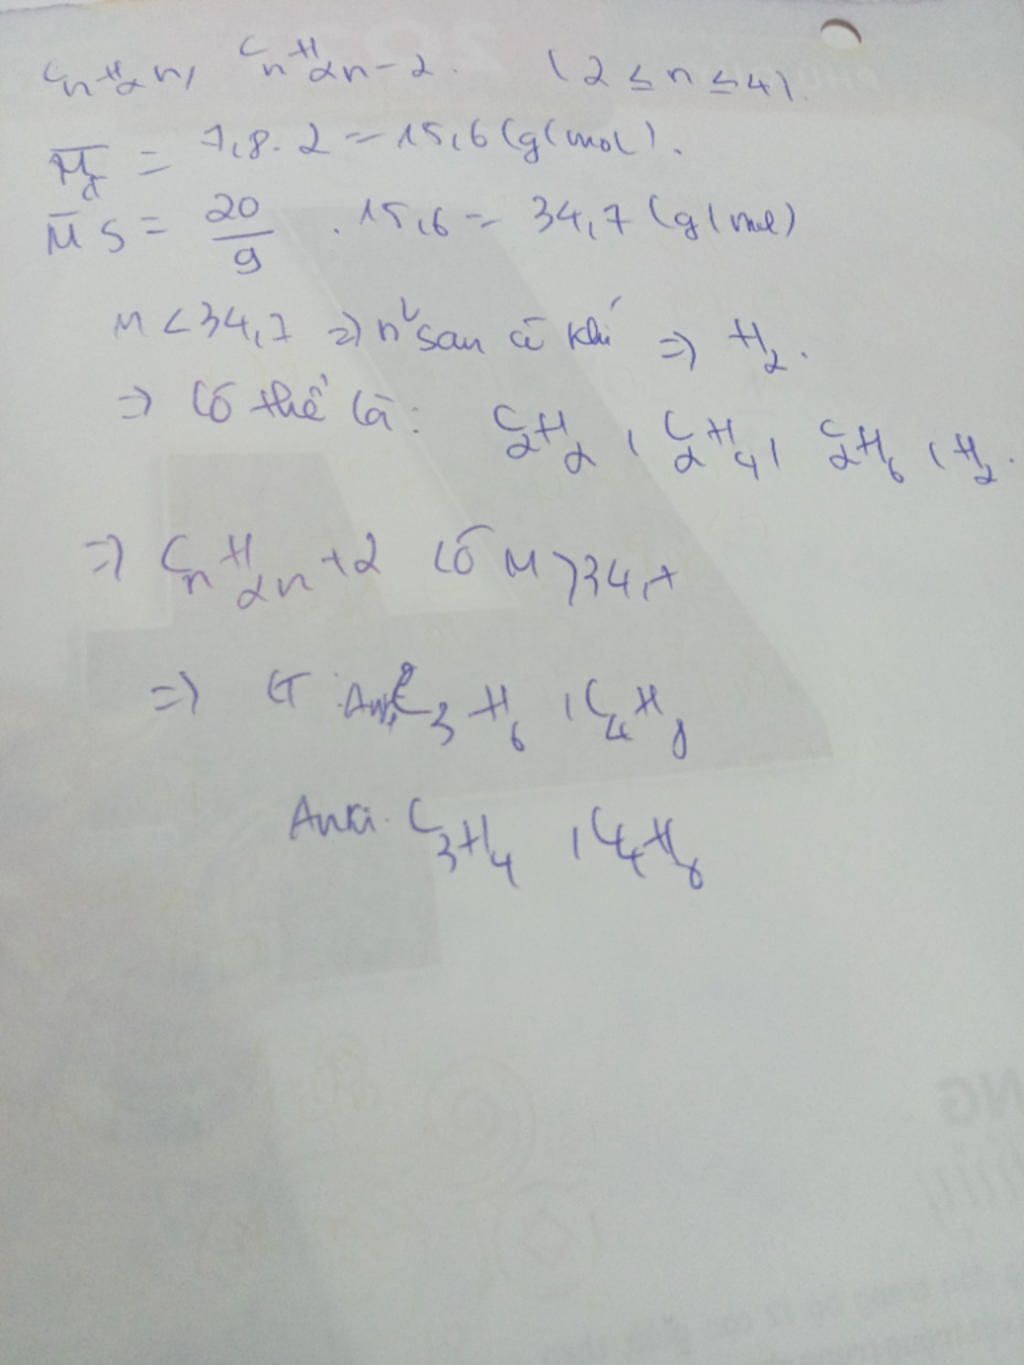 CnH2n, CnH2n-2. (2 ≤ n ≤ 4).
M̅x = 7,8.2 = 15,6 (g/mol).
M̅s = 20/9 . 15,6 = 34,7 (g/mol)
M < 34,7 => sau khí => H2.
=> Có thể là: C2H2, C2H4, C2H6, H2.
=> CnH2n+2 có M > 34,7
=> CT C3H6, C4H8
Anki C3H4, C4H6
NG